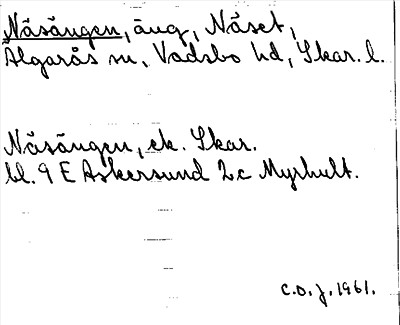 Näsängen, äng, Näset,
Älgarås sn, Vadsbo hd, Skar. l.
Näsängen, ek. Skar.
bl. 9 E Askersund 2c Myrhult.
C.O.J. 1961.